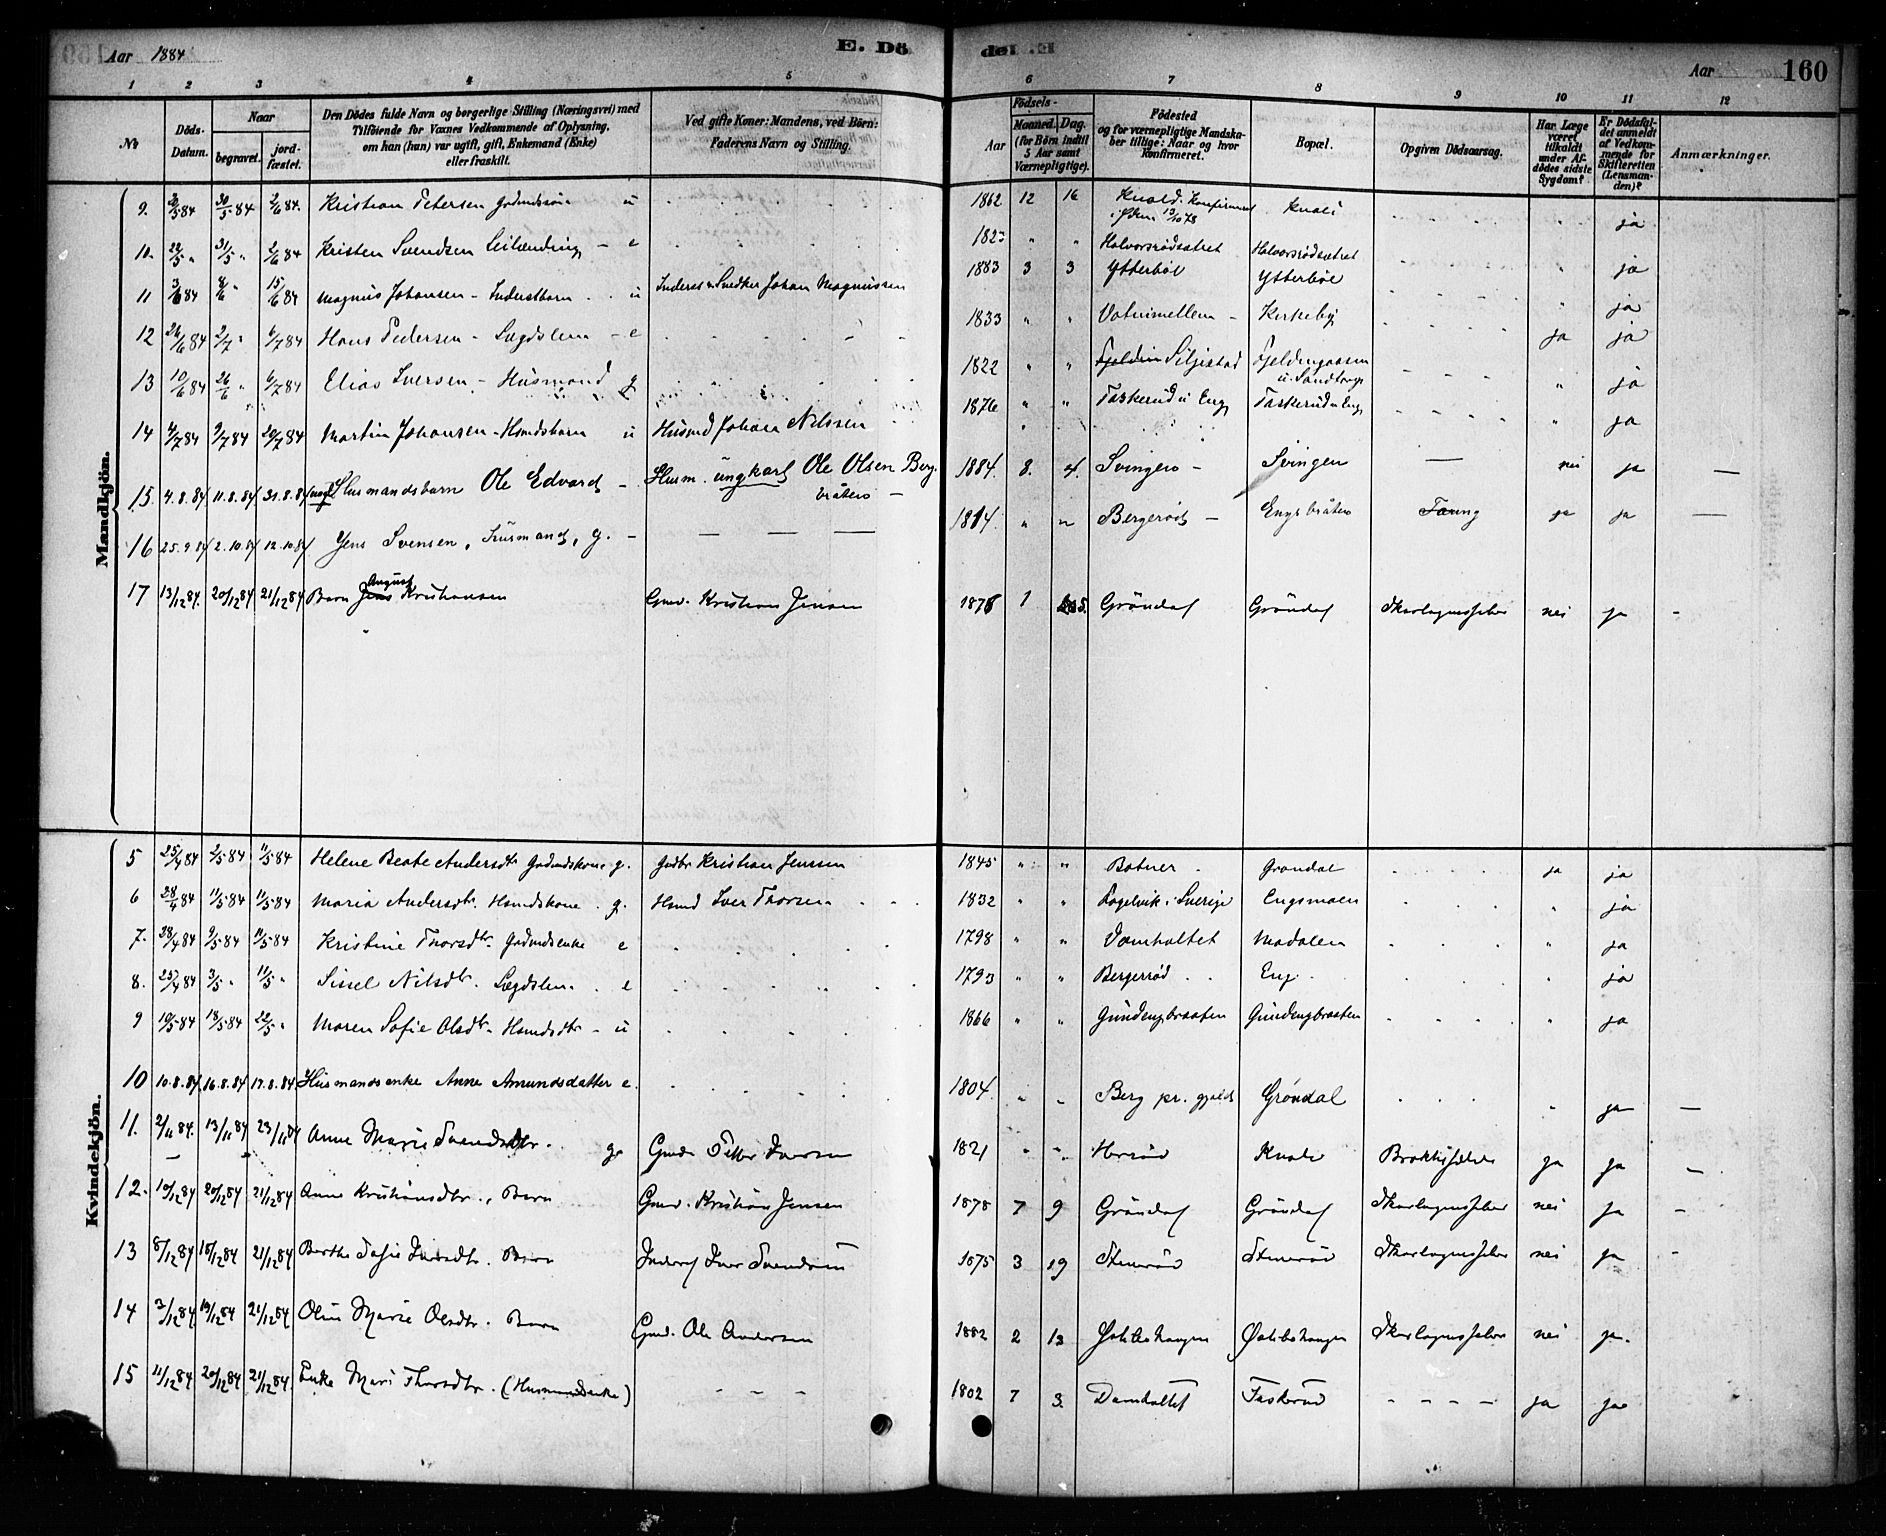 Aar 1884 E. Dö
del E. Aar 160
1 2 3 4 5
6 7 8 9 10 11 12
No
Döds-Datum.
Naar
begravet.
jordfæstet.
Den Dödes fulde Navn og borgerlige Stilling (Næringsvei) med
Tilföiende for Voxnes Vedkommende af Oplysning,
om han (hun) var ugift, gift, Enkemand (Enke)
eller fraskilt.
Ved gifte Koner: Mandens, ved Börn:
Faderens Navn og Stilling.
Födsels-
Aar
Maaned. Dag.
(for Börn indtil
5 Aar samt
Værnepligtige).
Födested
og for værnepligtige Mandska-
ber tillige: Naar og hvor
konfirmeret.
Bopæl.
Opgiven Dödsaarsag.
Har Læge
været
tilkaldt
under Af-
dödes sidste
Sygdom?
Er Dödsfal-
det anmeldt
af Vedkom-
mende for
Skifteretten
(Lensman-
den)?
Anmærkninger.
Mandkjön.
9. 30/5 84 2/6 84. Kristian Petersen u 1862 12 16 Konfirmeret ja
10. 22/5 " 31/5 " 2/6 84 Kristen Svendsen Leilænding - e " " Halvorsrødsætret Halvorsrødsætret ja
11 15/6 84 Magnus Johansen - Inderstbarn u Johan Magnussen 1883 3 3 Ytterböl Ytterböl ja
12 26/6 84 2/7 " 6/7 84 Hans Pedersen - Lægdslem - e 1833 " " Kirkeby ja ja
13 10/6 84 26/6 " 6/7 84 Elias Iversen - Husmand g 1822 " " Siljestad " ja
14 4/7 84 9/7 84 20/7 84 Martin Johansen - Hsmdsbarn u Husmd Johan Nilssen 1876 " " Taskerud u Eng Taskerud u Eng " ja
15. 4.8.84 11.8.84 31.8.84 Husmandsbarn Ole Edvard - Husm. ungkarl Ole Olsen Berg-
bråten - 1884 8. 4. Svingen - Svingen — nei ja —
16 25.9.84 2.10.84 12.10.84 Jens Svensen, Husmand, g. - — — — 1814. " " Bergeröd - Engsbråten Tæring ja ja —
17 13/12 84. 20/12 84 21/12 84 Barn Jens August Kristiansen Gmd. Kristian Jensen 1878 1 5. Gröndal Gröndal Skarlagensfeber nei ja -
Kvindekjön.
5 25/4 84 2/5 84 11/5 84 Helene Beate Andersdtr Gaardmdskone g. Gmdbr Kristian Jenssen 1845 " " Botner Grøndal ja ja
6 28/4 84 11/5 84 11/5 84 Maria Andersdtr. Hsmdskone g. Hsmd Iver Thorsen 1832 " " i Sverige Engsmoen " ja
7. 28/4 84 9/5 84 11/5 84 Kristine Thorsdtr. Gadmdsenke e 1798 " " Damholtet Modalen " ja
8. 25/4 84 3/5 " 11/5 " Sissel Nilsdtr. Lægdslem e 1793 " " Bergerröd Eng " ja
9 10/5 84 18/5 84 22/5 " Maren Sofie Olsdtr - Hsmdsdtr - u 1866 " " Gundengbraaten Gundengbraaten " ja
10 10.8.84 16.8.84 17.8.84 Husmandsenke Anne Amundsdatter e. 1804. " " Berg pr. gjeld Gröndal " ja —
11. 2/11 84. 13/11 84 23/11 84 Anne Marie Svendsdtr. g Gmd. Petter Iversen 1821 " " ja ja —
12. 10/12 84 20/12 84 21/12 84 Anne Kristiansdtr., Barn Gmd. Kristian Jensen 1878 7 9 Gröndal Gröndal Skarlagensfeber nei ja -
13 8/12 84 18/12 84 21/12 84 Berthe Sofie Iversdtr. Barn Inderst Iver Svendsen 1875 3 19 Stenerød Stenerød Skarlagensfeber nei ja -
14 3/12 84 19/12 84 21/12 84 Oline Marie Olsdtr. Barn Gmd. Ole Andersen 1882 2 13 Skarlagensfeber nei ja.
15 11/12 84 20/12 84 21/12 84. Enke Mari Thorsdtr. (Husmandsenke) - - - 1802 7 3. Damholtet Taskerud - - - - ja ja